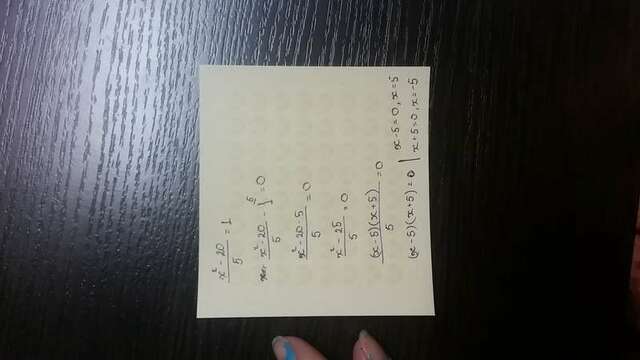 x² - 20 / 5 = 1
x² - 20 / 5 - 1 ⁵ = 0
x² - 20 - 5 / 5 = 0
x² - 25 / 5 = 0
(x - 5)(x + 5) / 5 = 0
(x - 5)(x + 5) = 0 | x - 5 = 0, x = 5
x + 5 = 0, x = -5